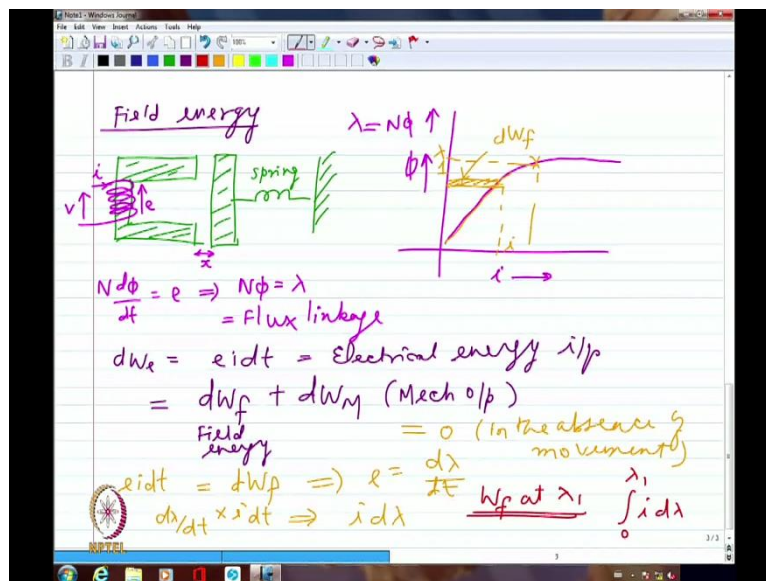 Note1 - Windows Journal
File Edit View Insert Actions Tools Help
100%
B I
Field energy
λ = Nϕ ↑
dWf
λ1
ϕ↑
spring
i
v ↑
↑ e
x
i
i →
N dϕ/dt = e ⇒ Nϕ = λ
= Flux linkage
dWe = eidt = Electrical energy i/p
= dWf + dWM (Mech o/p)
Field energy
= 0 (in the absence of movement)
eidt = dWf ⇒ e = dλ/dt
dλ/dt × idt ⇒ i dλ
Wf at λ1
∫0^λ1 i dλ
NPTEL
3/3
3